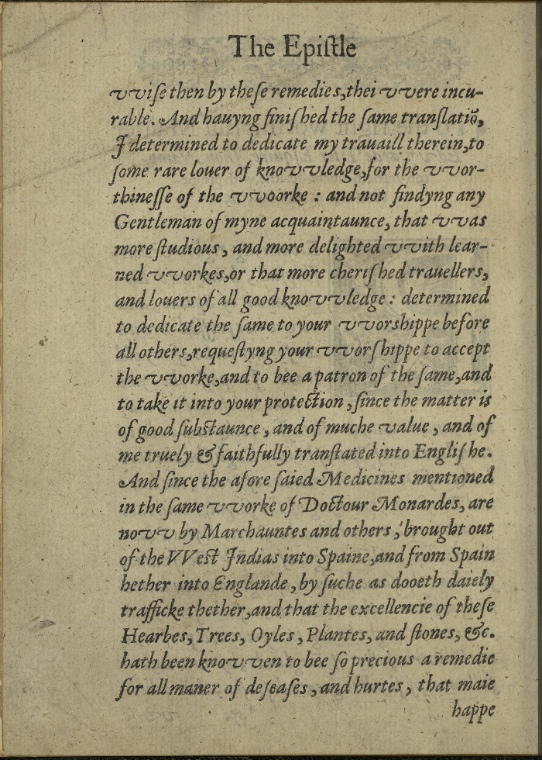 The Epiſtle
vviſe then by theſe remedies,thei vvere incu-
rable. And hauyng finiſhed the ſame tranſlatiõ,
I determined to dedicate my trauaill therein,to
ſome rare louer of knovvledge,for the vvor-
thineſſe of the vvoorke : and not findyng any
Gentleman of myne acquaintaunce, that vvas
more ſtudious, and more delighted vvith lear-
ned vvorkes,or that more cheriſhed trauellers,
and louers of all good knovvledge : determined
to dedicate the ſame to your vvorshippe before
all others,requeſtyng your vvorſhippe to accept
the vvorke,and to bee a patron of the ſame,and
to take it into your protection, ſince the matter is
of good ſubſtaunce, and of muche value, and of
me truely & faithfully tranſlated into Engliſhe.
And ſince the afore ſaied Medicines mentioned
in the ſame vvorke of Doctour Monardes, are
novv by Marchauntes and others, brought out
of the VVeſt Indias into Spaine,and from Spain
hether into Englande, by ſuche as dooeth daiely
trafficke thether,and that the excellencie of theſe
Hearbes, Trees, Oyles, Plantes, and ſtones, &c.
hath been knovven to bee ſo precious a remedie
for all maner of deſeaſes, and hurtes, that maie
happe